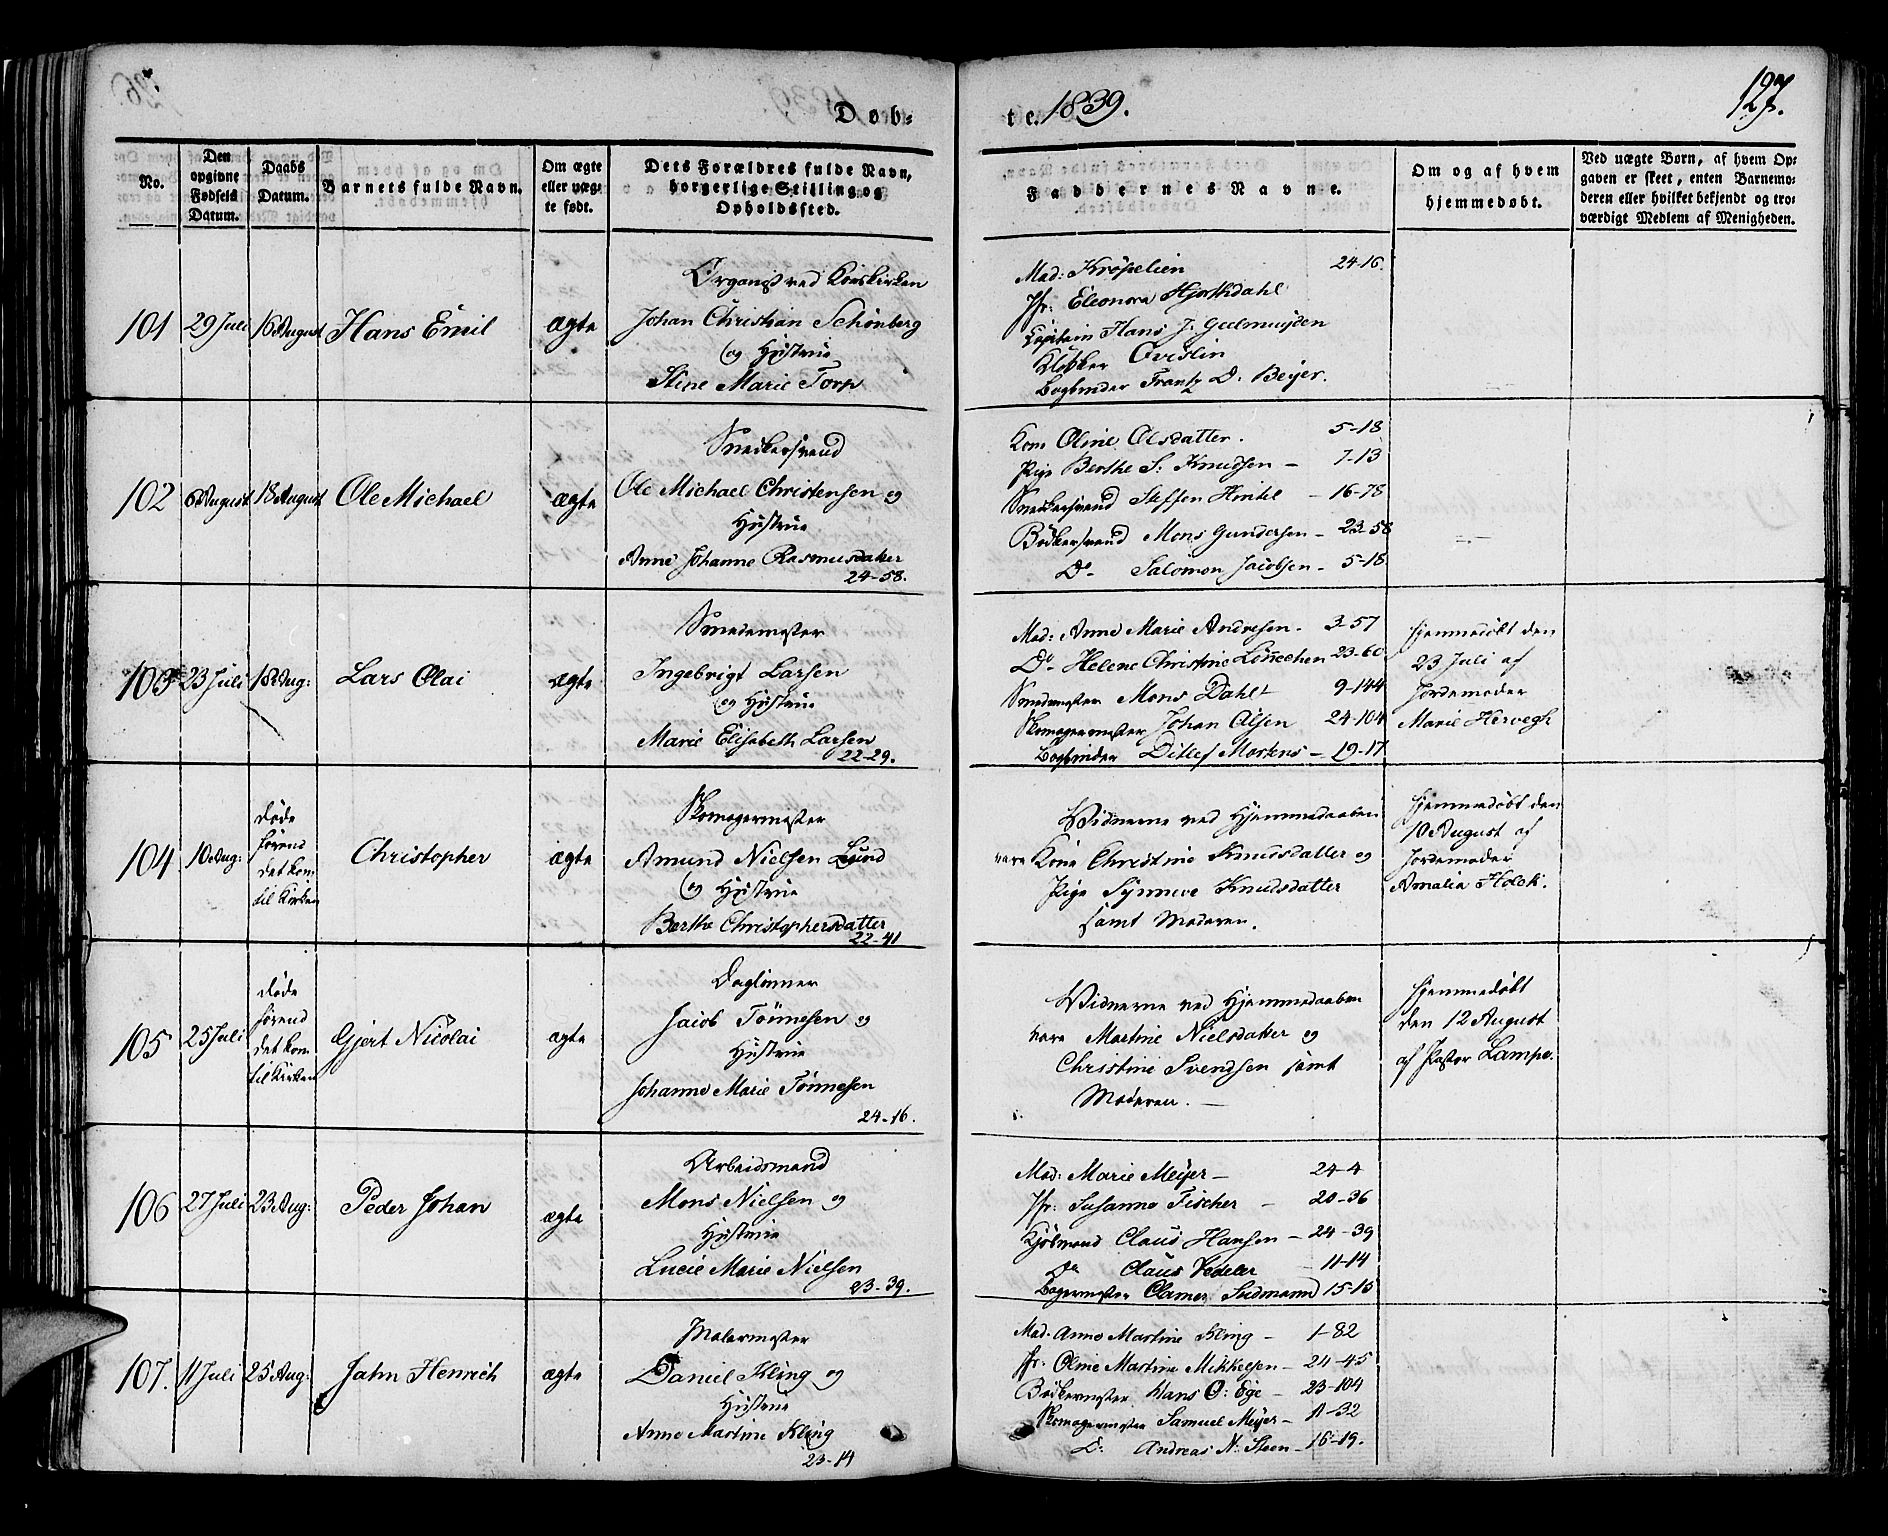 Døb-
te. 1839.
127.
No.
Den opgivne Fødsels Datum.
Daabs Datum.
Barnets fulde Navn.
Om ægte eller uægte født.
Dets Forældres fulde Navn, borgerlige Stilling og Opholdssted.
Faddernes Navne.
Om og af hvem hjemmedøbt.
Ved uægte Børn, af hvem Opgaven er skeet, enten Barnemoderen eller hvilket bekjendt og troværdigt Medlem af Menigheden.
101
29 Juli
16 August
Hans Emil
ægte
Organist ved Korskirken
Johan Christian Schönberg
og Hustrue
Stine Marie Torp
Mad: Kröpelien 24-16.
Jfr: Eleonora Hjorthdahl
Capitain Hans J. Gulmuyden
Klokker Qvislin
Bogbinder Frantz D. Beijer.
102
6 August
18 August
Ole Michael
ægte
Snedkersvend
Ole Michael Christensen og
Hustrue
Anne Johanne Rasmusdatter
24-58.
Kone Oline Olsdatter. 5-18
Pige Berthe S. Knudsen - 7-13
Snedkersvend Steffen Hinkel - 16-78
Bødkersvend Mons Gundersen - 23-58
Do- Salomon Jacobsen - 5-18
103
23 Juli
18 Aug:
Lars Olai
ægte
Smedemester
Ingebrigt Larsen
og Hustrue
Marie Elisabeth Larsen
22-29.
Mad: Anne Marie Andresen- 3-57
Do- Helene Christine Lönnechen 23-60
Smedemester Mons Dahl- 9-144
Skomagermester Johan Olsen 24-104
Bogbinder Ditlef Martens - 19-17
Hjemmedøbt den
23 Juli af
Jordemoder
Marie Hervegh
104
10 Aug:
døde
førend
det kom
til Kirken
Christopher
ægte
Skomagermester
Amund Nielsen Lund
og Hustrue
Berthe Christophersdatter
22-41
Vidnerne ved Hjemmedaaben
vare Kone Christine Knudsdatter og
Pige Synneve Knudsdatter
samt Moderen.
Hjemmedøbt den
10 August af
Jordemoder
Amalia Holck.
105
25 Juli
døde
førend
det kom
til Kirken
Gjert Nicolai
ægte
Dagløнner
Jacob Tönnesen og
Hustrue
Johanne Marie Tönnesen
24-16.
Vidnerne ved Hjemmedaaben
vare Martine Nielsdatter og
Christine Svendsen samt
Moderen. -
Hjemmedøbt
den 12 August
af Pastor Lampe.
106
27 Juli
23 Aug:
Peder Johan
ægte
Arbeidsmand
Mons Nielsen og
Hustrue
Lucie Marie Nielsen
23-39.
Mad: Marie Meijer - 24-4
Jfr: Susanne Fischer - 20-36
Kjøbmand Claus Hansen - 24-39
Do Claus Vedeler - 11-14
Bagermester Clamer Sudmann 15-15
107.
11 Juli
25 Aug:
Jahn Henrich
ægte
Malermester
Daniel Kling og
Hustrue
Anne Martine Kling
23-14
Mad. Anne Martine Kling - 1-82
Jfr: Oline Martine Mikkelsen - 24-45
Bødkermester Hans O: Ege - 23-104
Skomagermester Samuel Meijer - 11-32
Do: Andreas N. Steen - 16-19.